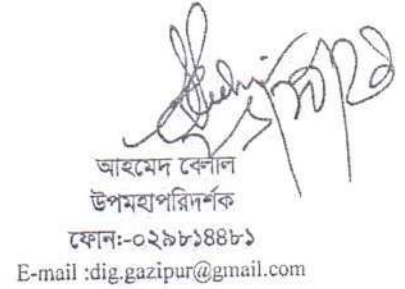 আহমেদ বেলাল
উপমহাপরিদর্শক
ফোন:-০২৯৮১৪৪৮১
E-mail :dig.gazipur@gmail.com